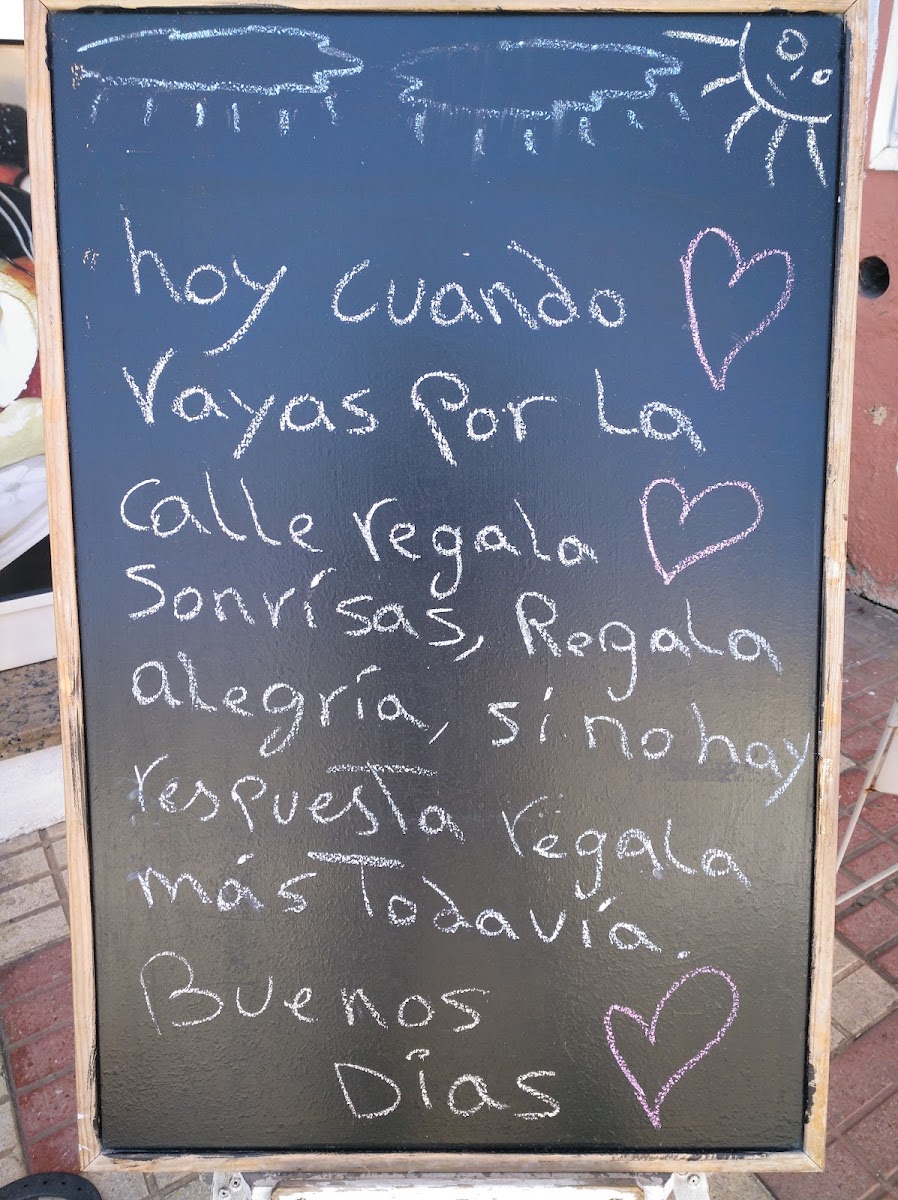 hoy cuando
vayas por la
calle regala
sonrísas, Regala
alegría, si no hay
respuesta regala
más Todavía.
Buenos
Días